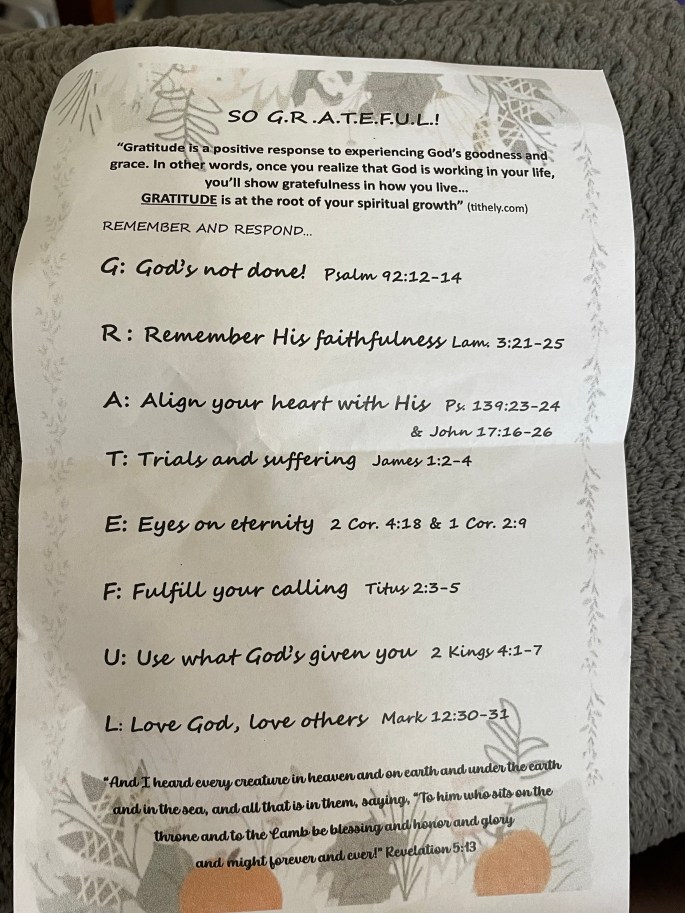 SO G.R.A.T.E.F.U.L.!
“Gratitude is a positive response to experiencing God’s goodness and
grace. In other words, once you realize that God is working in your life,
you’ll show gratefulness in how you live...
GRATITUDE is at the root of your spiritual growth” (tithely.com)
REMEMBER AND RESPOND...
G: God’s not done! Psalm 92:12-14
R: Remember His faithfulness Lam. 3:21-25
A: Align your heart with His Ps. 139:23-24
& John 17:16-26
T: Trials and suffering James 1:2-4
E: Eyes on eternity 2 Cor. 4:18 & 1 Cor. 2:9
F: Fulfill your calling Titus 2:3-5
U: Use what God’s given you 2 Kings 4:1-7
L: Love God, love others Mark 12:30-31
“And I heard every creature in heaven and on earth and under the earth
and in the sea, and all that is in them, saying, “To him who sits on the
throne and to the Lamb be blessing and honor and glory
and might forever and ever!” Revelation 5:13